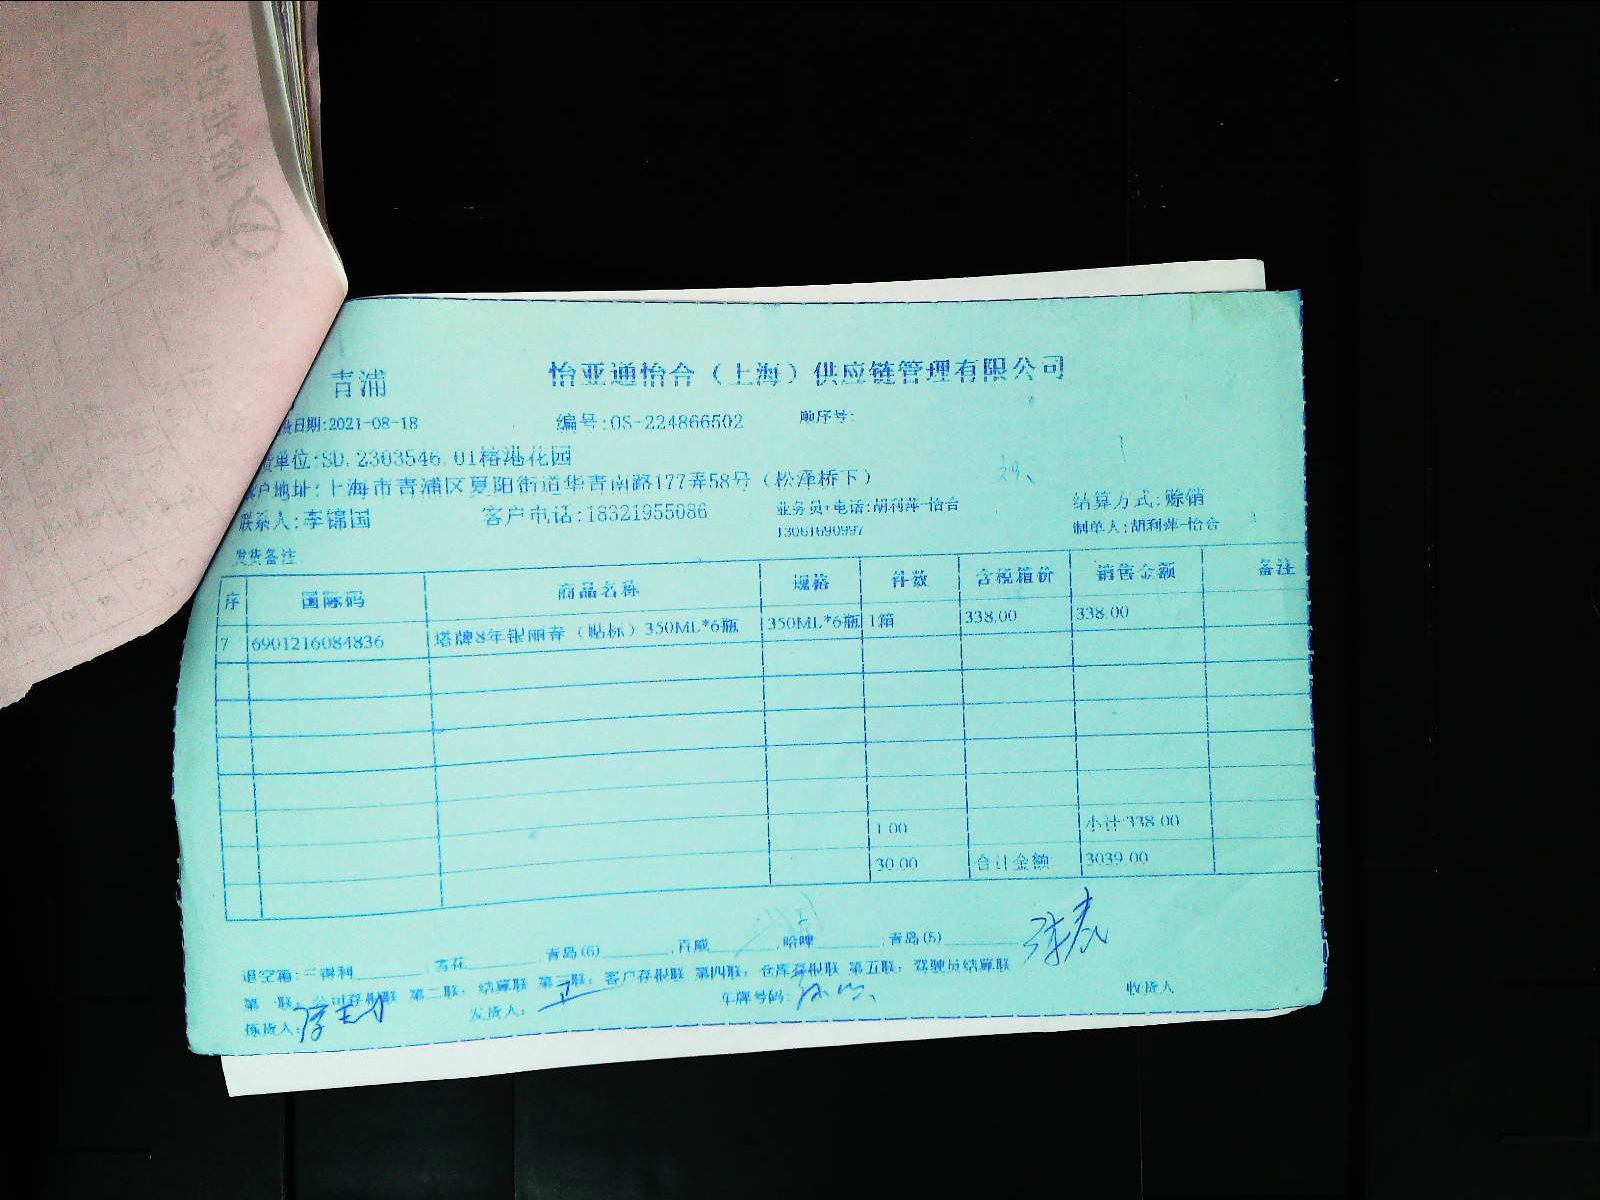 青浦 怡亚通怡合（上海）供应链管理有限公司
日期:2021-08-18 编号:OS-224866502 顺序号:
货单位:SD.2303546.01椿港花园
客户地址:上海市青浦区夏阳街道华青南路177弄58号（松泽桥下）
联系人:李锦国 客户电话:18321955086 业务员+电话:胡利萍-怡合 结算方式:赊销
13061690997 制单人:胡利萍-怡合
发货备注
序 国际码 商品名称 规格 件数 含税箱价 销售金额 备注
7 6901216084836 塔牌8年银丽春（贴标）350ML*6瓶 350ML*6瓶 1箱 338.00 338.00
1.00 小计:338.00
30.00 合计金额 3039.00
退空箱:三得利 ,雪花 ,青岛(6) ,百威 ,哈啤 ,青岛(5)
第一联:公司存根联 第二联:结算联 第三联:客户存根联 第四联:仓库存根联 第五联:驾驶员结算联
拣货人: 发货人: 车牌号码: 收货人